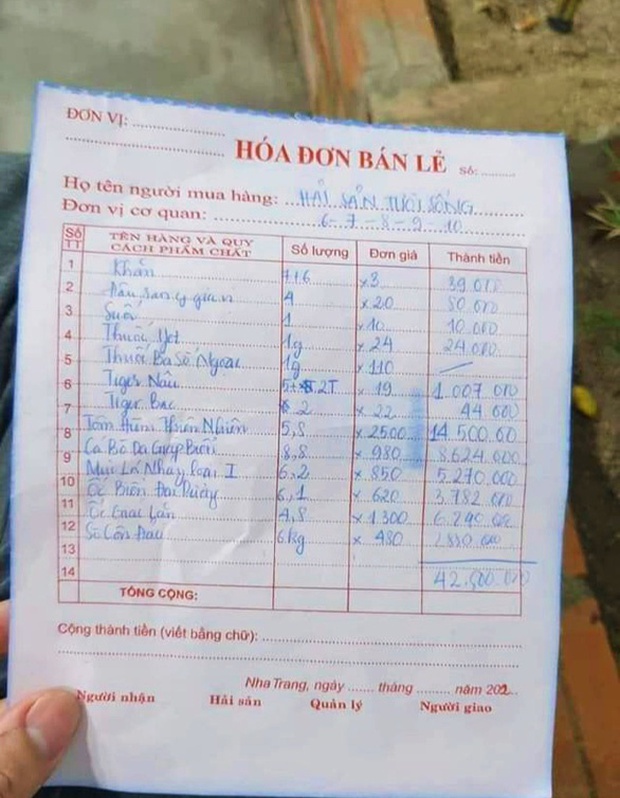 ĐƠN VỊ: ....................
HÓA ĐƠN BÁN LẺ Số: .........
Họ tên người mua hàng: HẢI SẢN TƯƠI SỐNG
Đơn vị cơ quan: 6-7-8-9-10
Số TT TÊN HÀNG VÀ QUY CÁCH PHẨM CHẤT Số lượng Đơn giá Thành tiền
1 Khăn x3
2 4 x20 80.000
3 Suối 1 x10 10.000
4 Thuốc 1g x24 24.000
5 Thuốc Ba Số Ngoại 1g x110
6 Tiger Nâu 2T x 19 1.007.000
7 Tiger Bạc 2 x 22 44.000
8 Tôm Hùm Thiên Nhiên 5,8 x 2500 14.500.00
9 Cá Bò Da Giáp Biển 8,8 x 980 8.624.000
10 Loại I 6,2 x 850 5.270.000
11 Ốc Biển 6,1 x 620 3.782.000
12 Ốc 4,8 x 1300
13 6kg x 480
14 42.500.000
TỔNG CỘNG:
Cộng thành tiền (viết bằng chữ): ....................
Nha Trang, ngày ....... tháng ......... năm 202..
Người nhận Hải sản Quản lý Người giao